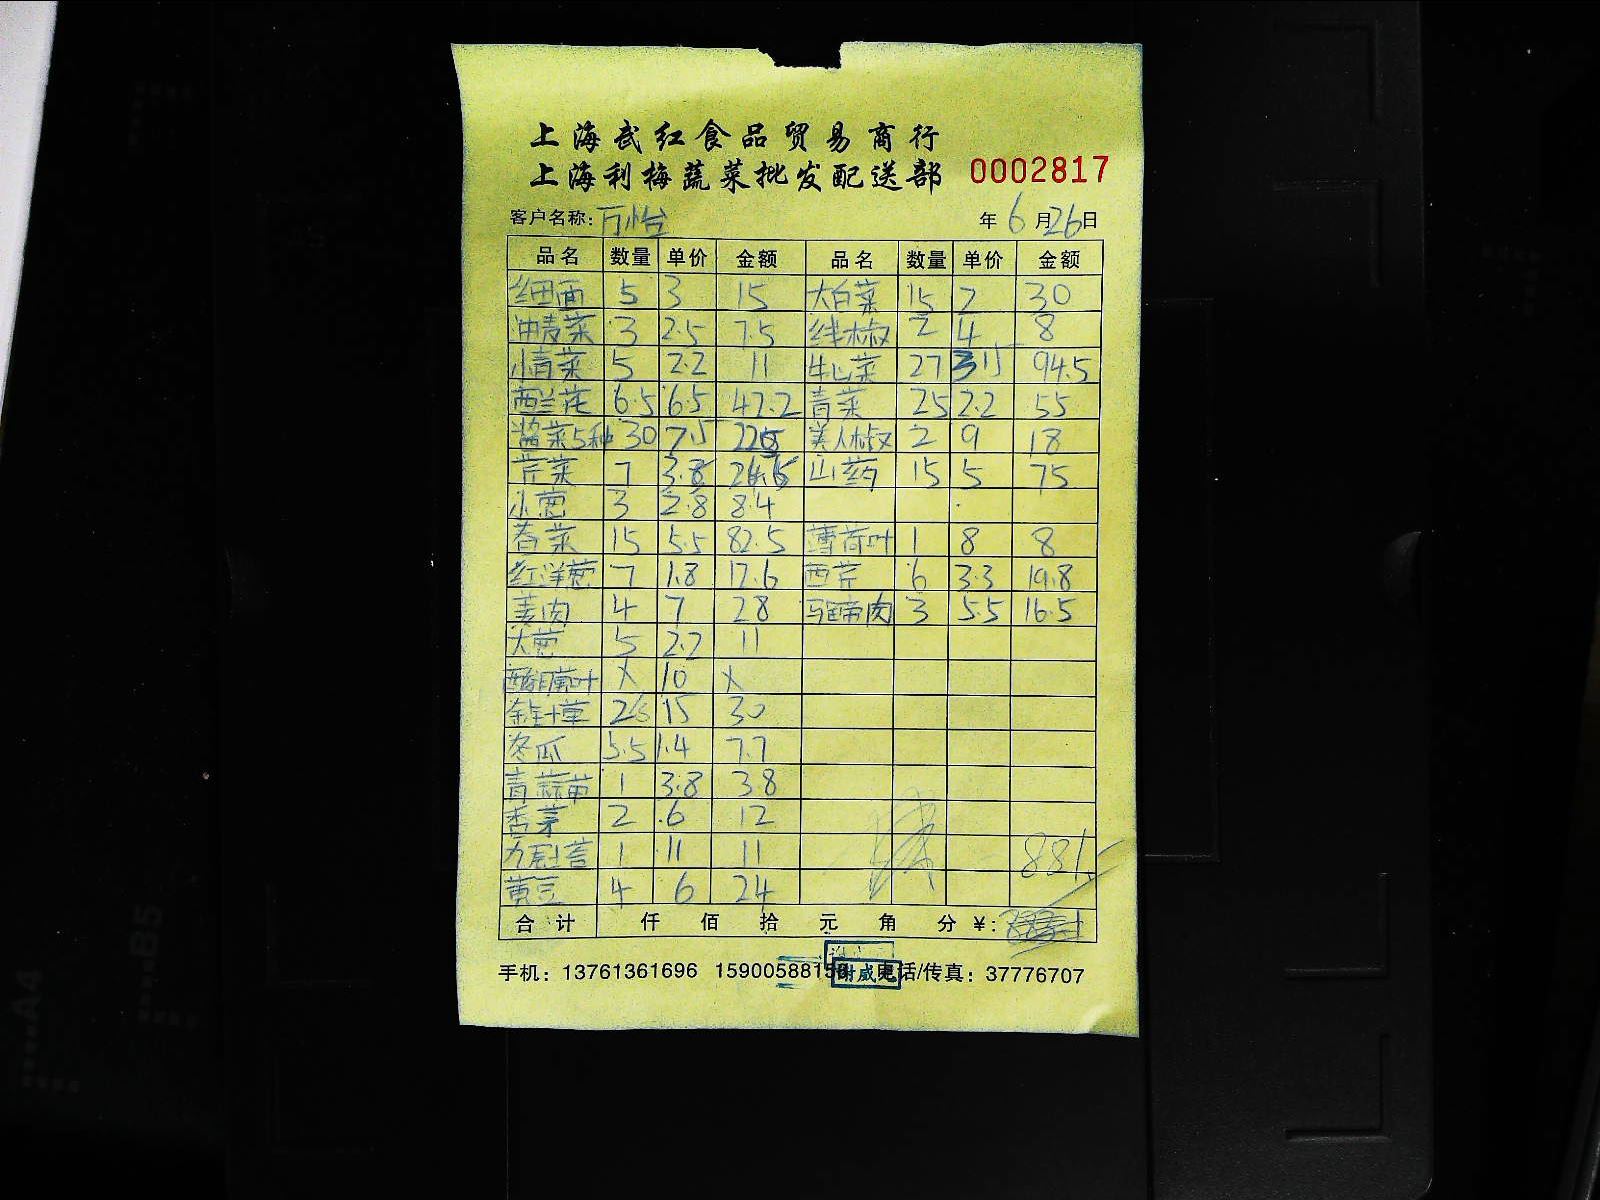 上海武红食品贸易商行
上海利梅蔬菜批发配送部 0002817
客户名称: 万怡 年 6 月 26 日
品名 数量 单价 金额 品名 数量 单价 金额
细面 5 3 15 大白菜 15 2 30
油麦菜 3 2.5 7.5 线椒 2 4 8
小青菜 5 2.2 11 牛心菜 27 3.5 94.5
西兰花 6.5 6.5 42.2 青菜 25 2.2 55
酱菜5种 30 7.5 225 美人椒 2 9 18
芹菜 7 3.8 山药 15 5 75
小葱 3 2.8 8.4
春菜 15 5.5 82.5 薄荷叶 1 8 8
红洋葱 7 1.8 12.6 西芹 6 3.3 19.8
姜肉 4 7 28 马蹄肉 3 5.5 16.5
大葱 5 2.2 11
X 10 X
金针菇 15 30
冬瓜 5.5 1.4 7.7
青蒜苗 1 3.8 3.8
香茅 2 6 12
九层塔 1 11 11
黄豆 4 6 24
合计 仟 佰 拾 元 角 分 ¥:
手机: 13761361696 1590058815 电话/传真: 37776707
谢威